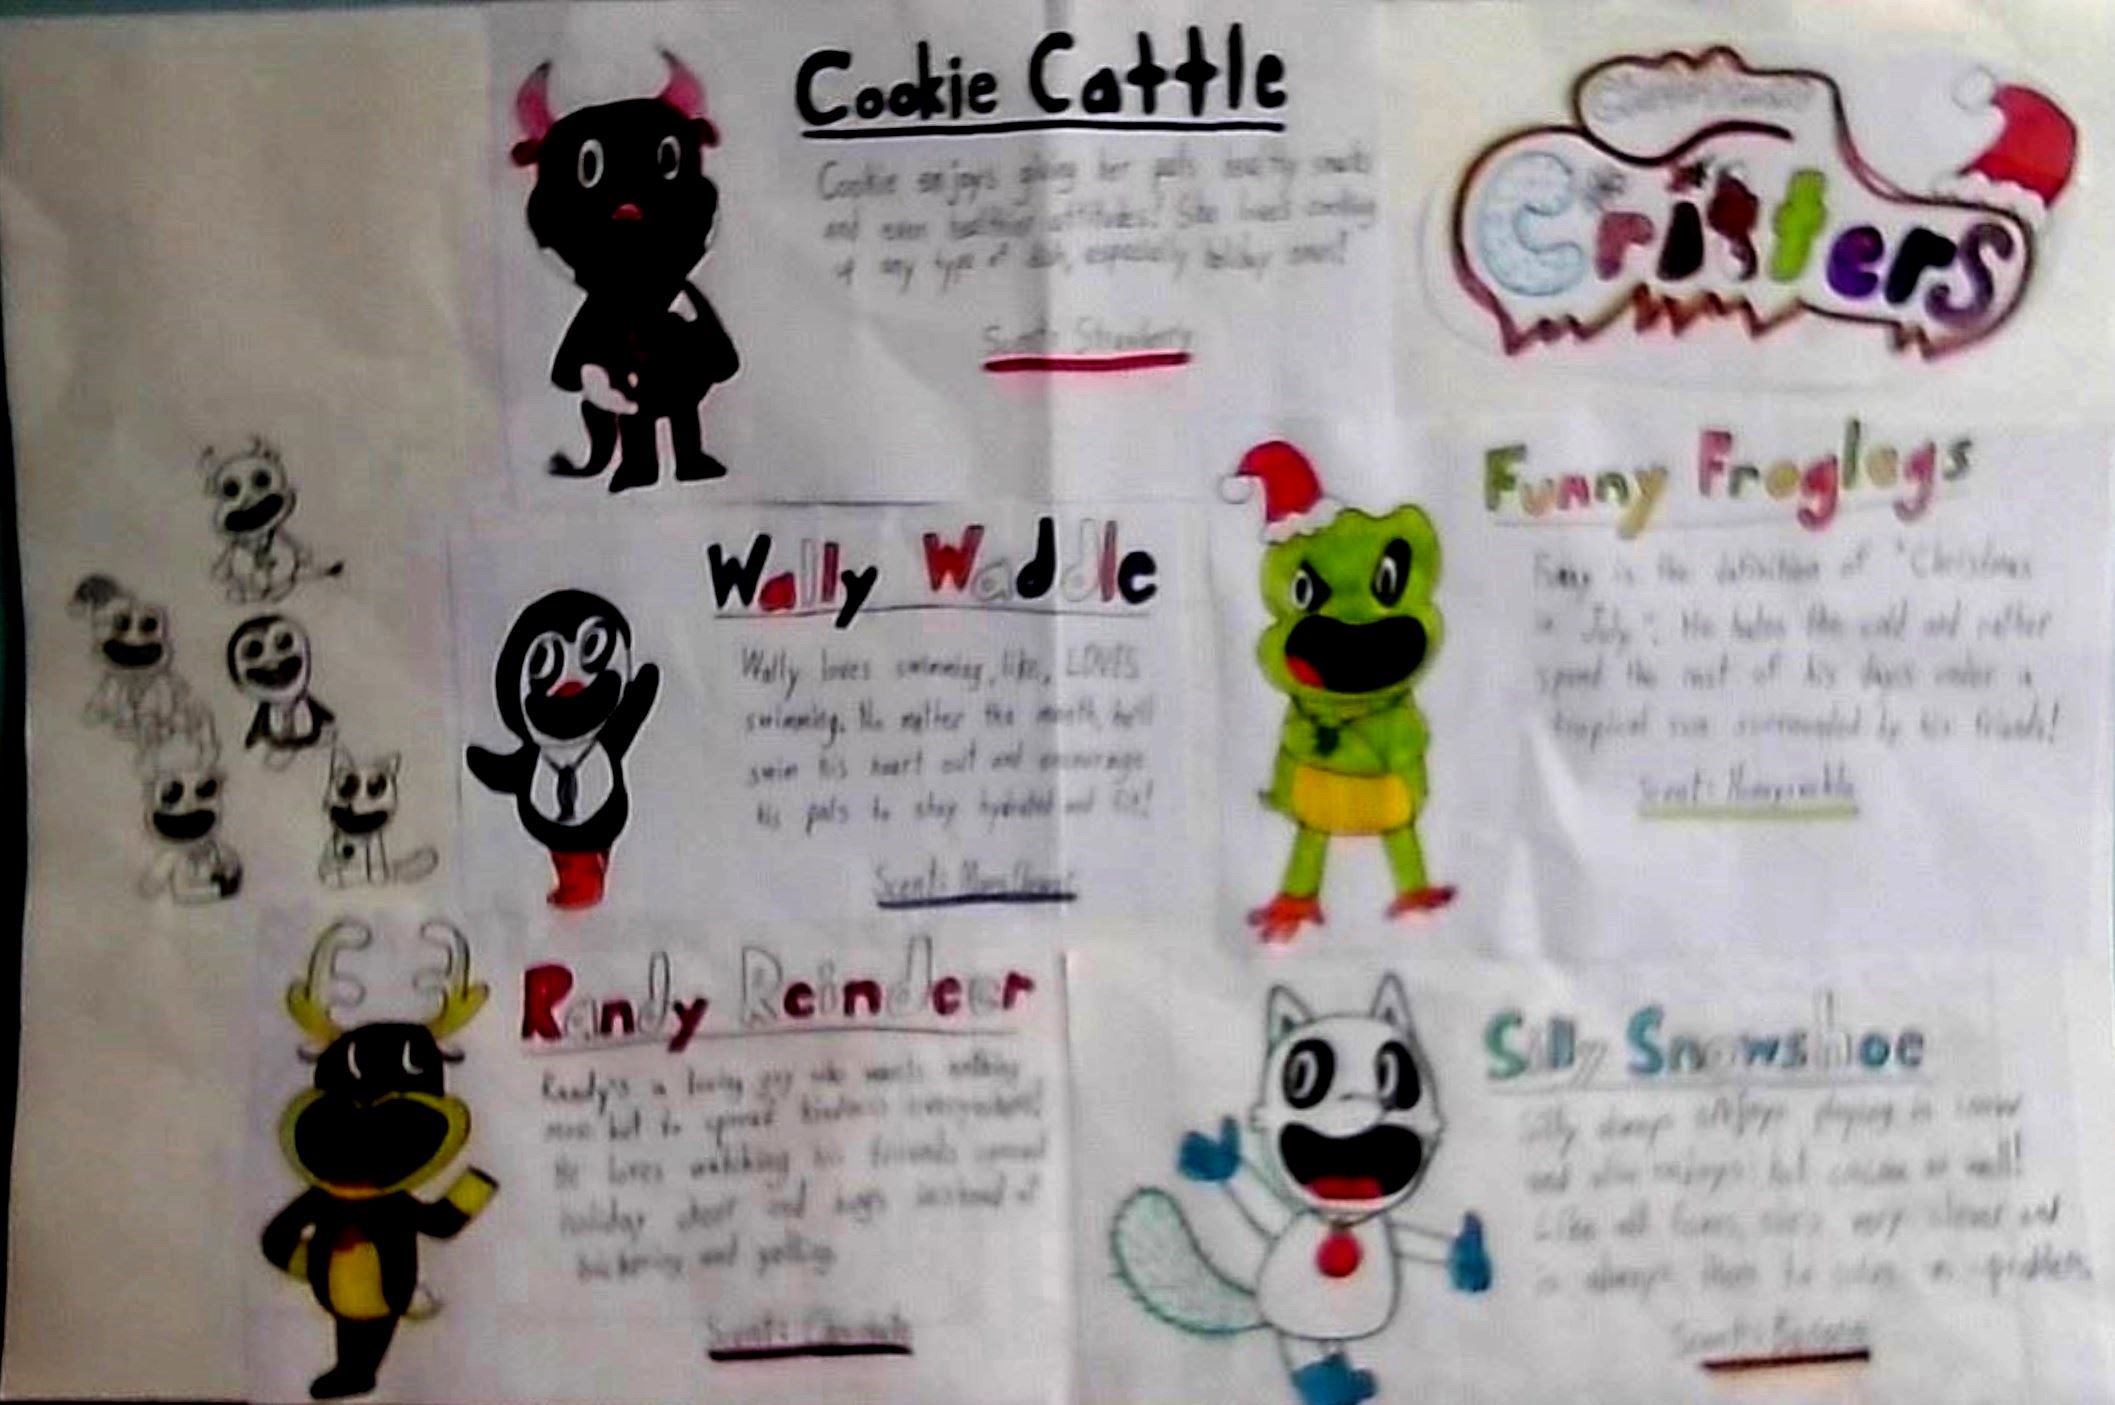 Cookie Cattle
Cookie enjoys giving her pals healthy snacks
and even healthier attitudes! She loves cooking
of any type of dish, especially holiday ones!
Scent: Strawberry
Critters
Wally Waddle
Wally loves swimming, like, LOVES
swimming. No matter the month, he'll
swim his heart out and encourage
his pals to stay hydrated and fit!
Scent:
Funny Froglegs
Funny is the definition of "Christmas
in July". He hates the cold and rather
spend the rest of his days under a
tropical sun surrounded by his friends!
Scent: Honeysuckle
Randy Reindeer
Randy's a loving guy who wants nothing
more but to spread kindness everywhere!
He loves watching his friends spread
holiday cheer and hugs instead of
bickering and yelling.
Scent: Chocolate
Silly Snowshoe
Silly always enjoys playing in snow
and also enjoys hot cocoa as well!
Like all foxes, she's very clever and
is always there to solve a problem.
Scent: